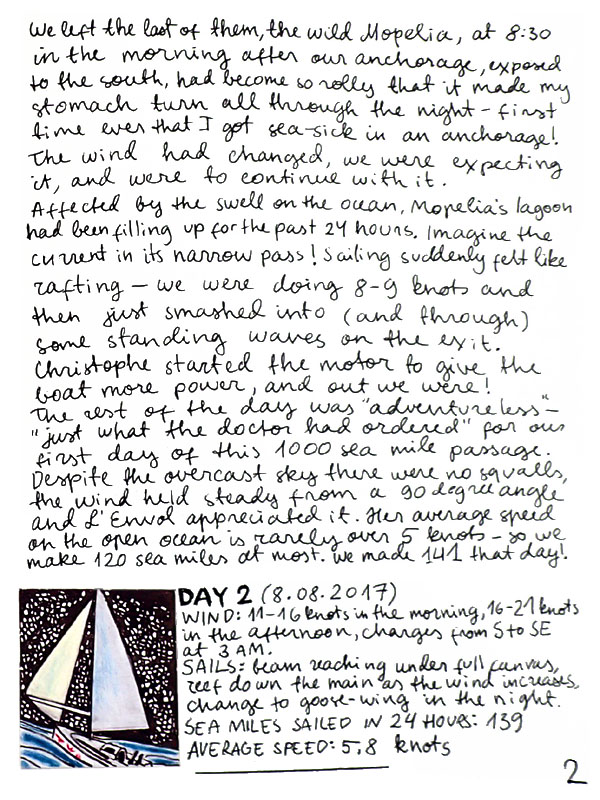 We left the last of them, the wild Mopelia, at 8:30
in the morning after our anchorage, exposed
to the south, had become so rolly that it made my
stomach turn all through the night - first
time ever that I got sea-sick in an anchorage!
The wind had changed, we were expecting
it, and were to continue with it.
Affected by the swell on the ocean, Mopelia's lagoon
had been filling up for the past 24 hours. Imagine the
current in its narrow pass! Sailing suddenly felt like
rafting – we were doing 8-9 knots and
then just smashed into (and through)
some standing waves on the exit.
Christophe started the motor to give the
boat more power, and out we were!
The rest of the day was "adventureless" –
"just what the doctor had ordered" for our
first day of this 1000 sea mile passage.
Despite the overcast sky there were no squalls,
the wind held steady from a 90 degree angle
and L'Envol appreciated it. Her average speed
on the open ocean is rarely over 5 knots – so, we
make 120 sea miles at most. We made 141 that day!
DAY 2 (8.08.2017)
WIND: 11-16 knots in the morning, 16-21 knots
in the afternoon, changes from S to SE
at 3 AM.
SAILS: beam reaching under full canvas,
reef down the main as the wind increases,
change to goose-wing in the night.
SEA MILES SAILED IN 24 HOURS: 139
AVERAGE SPEED: 5,8 knots
2